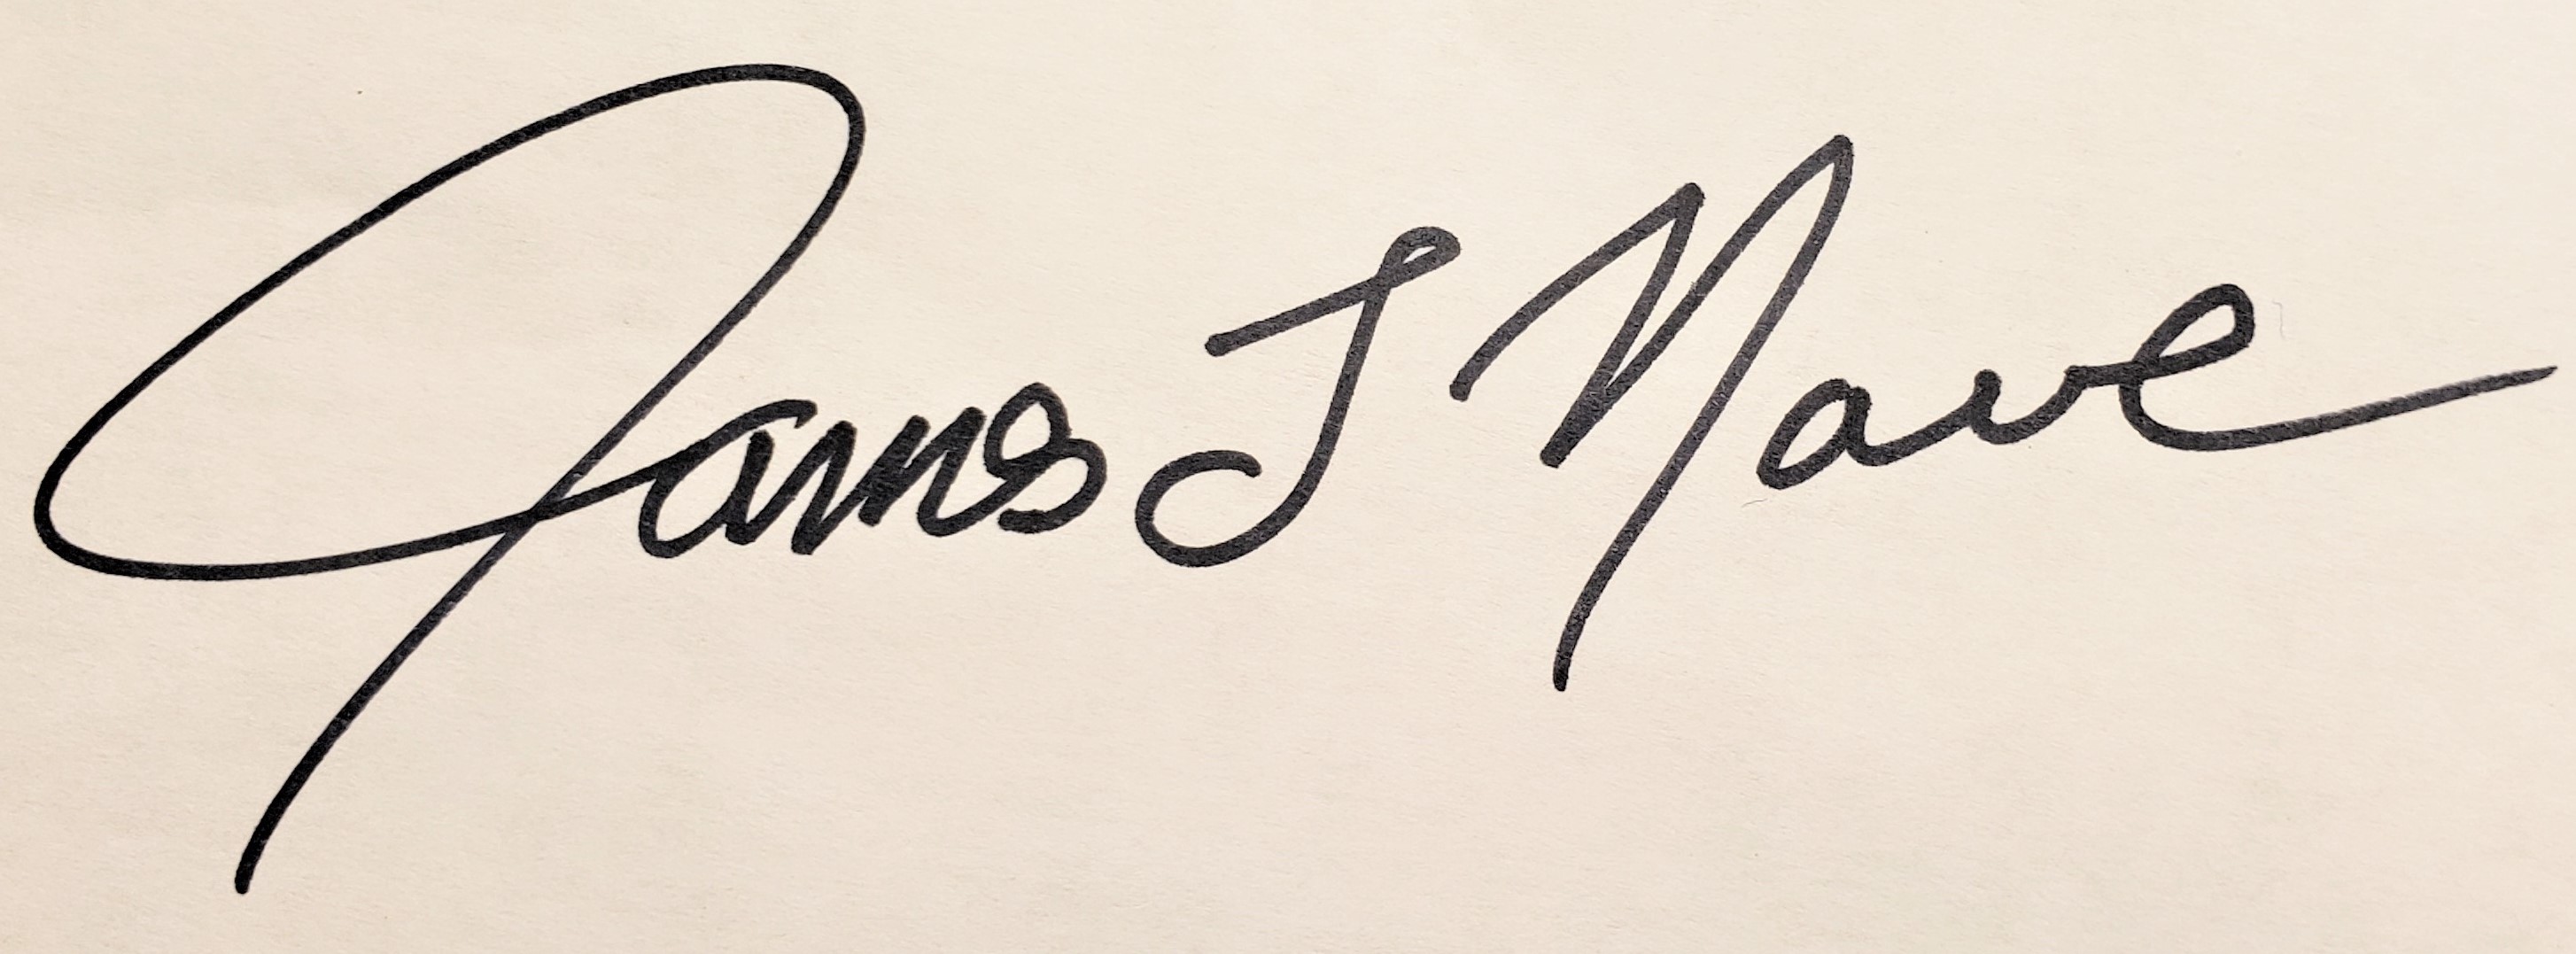 James J Nave